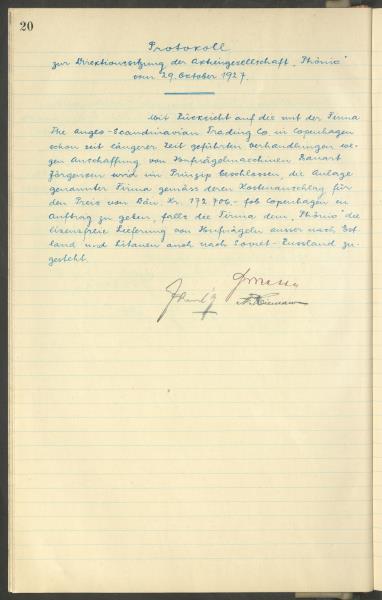 20
Protokoll
zur Direktionssitzung der Aktiengesellschaft „Phönix“
vom 29. Oktober 1927.
Mit Rücksicht auf die mit der Firma
The Anglo-Scandinavian Trading Co. in Copenhagen
schon seit längerer Zeit geführten Verhandlungen we-
gen Anschaffung von Hufnägelmaschinen Bauart
Jörgensen wird im Prinzip beschlossen, die Anlage
genannter Firma gemäss deren Kostenanschlag für
den Preis von Dän. Kr. 172.706,- fob Copenhagen in
Auftrag zu geben, falls die Firma dem „Phönix“ die
lizensfreie Lieferung von Hufnägeln ausser nach Est-
land und Litauen auch nach Soviet-Russland zu-
gesteht.